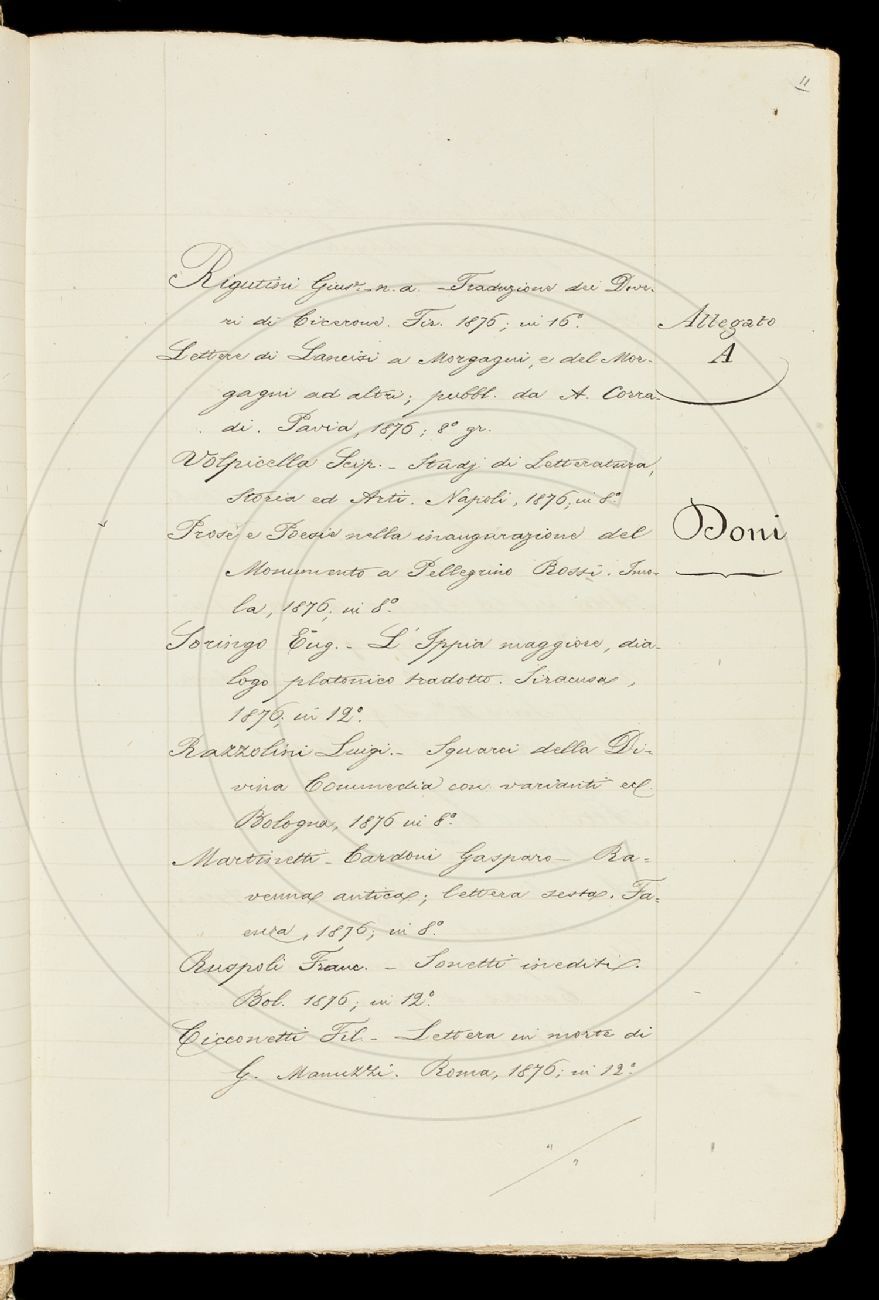 11
Rigutini Gius.e n. a. - Traduzione dei Dove-
ri di Cicerone. Fir. 1876; in 16º.
Allegato
A
Lettere di Lancisi a Morgagni, e del Mor-
gagni ad altri; pubbl. da A. Corra-
di. Pavia, 1876; 8º gr.
Volpicella Scip. - Studj di Letteratura,
Storia ed Arti. Napoli, 1876; in 8º.
Doni
Prose e Poesie nella inaugurazione del
Monumento a Pellegrino Rossi. Imo-
la, 1876; in 8º.
Soringo Eug. - L'Ippia maggiore, dia-
logo platonico tradotto. Siracusa,
1876; in 12º.
Razzolini Luigi. - Squarci della Di-
vina Commedia con varianti ec.
Bologna, 1876 in 8º.
Martinetti - Cardoni Gasparo - Ra-
venna antica; lettera sesta. Fa-
enza, 1876; in 8º.
Ruspoli Franc. - Sonetti inediti.
Bol. 1876; in 12º.
Cicconetti Fil. - Lettera in morte di
G. Manuzzi. Roma, 1876; in 12º.